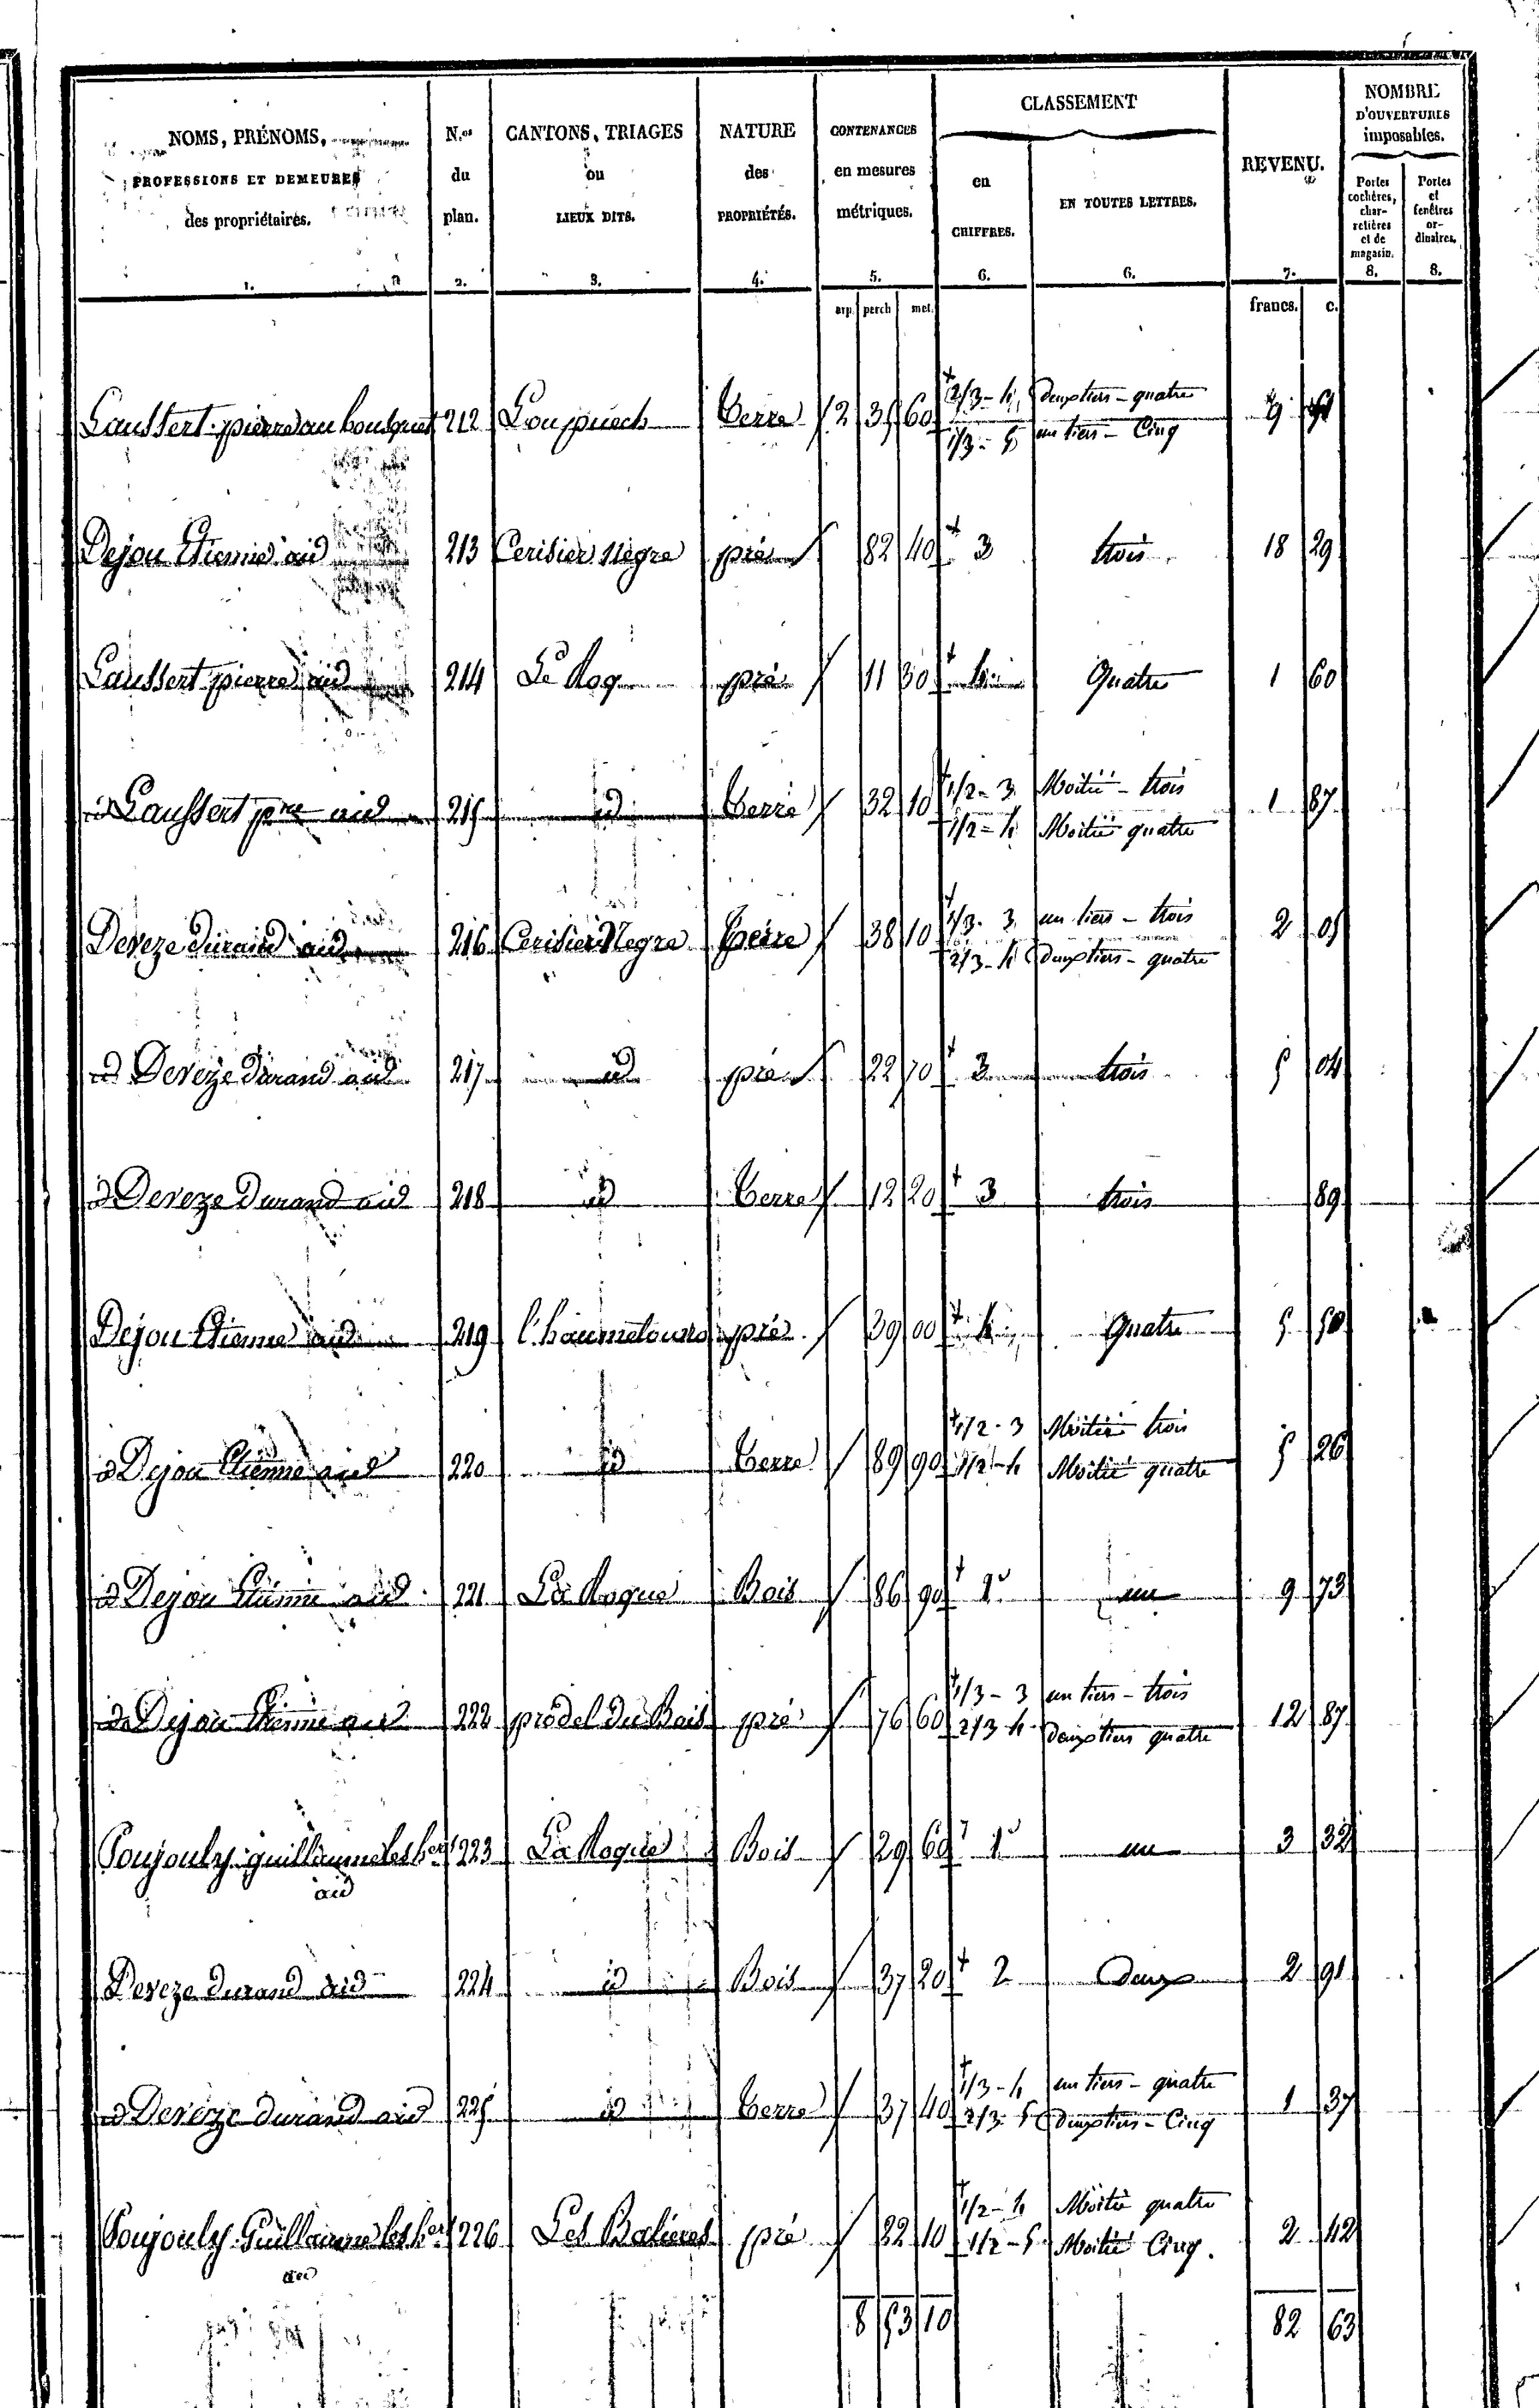 NOMS, PRÉNOMS,
PROFESSIONS ET DEMEURES
des propriétaires.
1.
N.os
du
plan.
2.
CANTONS, TRIAGES
ou
LIEUX DITS.
3.
NATURE
des
PROPRIÉTÉS.
4.
CONTENANCES
en mesures
métriques.
5.
CLASSEMENT
en
CHIFFRES.
6.
EN TOUTES LETTRES.
6.
REVENU.
7.
NOMBRE
D'OUVERTURES
imposables.
Portes
cochères,
char-
retières
et de
magasin.
8.
Portes
et
fenêtres
or-
dinaires.
8.
arp. perch met. francs. c.
Laussert pierre au bousquet 212 Lou puech Terre 2 35 60 2/3 - 4 deux tiers - quatre 9 51
1/3 - 5 un tiers - Cinq
Dejou Etienne aud 213 Cerisier Negre pré 82 40 3 trois 18 29
Laussert pierre aud 214 Le Roq pré 11 30 4 Quatre 1 60
id Laussert pre aud 215 id Terre 32 10 1/2 - 3 Moitié - trois 1 87
1/2 - 4 Moitié quatre
Dereze Durand aud 216 Cerisier Negre Terre 38 10 1/3 - 3 un tiers - trois 2 05
2/3 - 4 deux tiers - quatre
id Dereze Durand aud 217 id pré 22 70 3 trois 5 04
id Dereze Durand aud 218 id Terre 12 20 3 trois 89
Dejou Etienne aud 219 Chaumetours pré 39 00 4 Quatre 5 50
id Dejou Etienne aud 220 id Terre 89 90 1/2 - 3 Moitié trois 5 26
1/2 - 4 Moitié quatre
id Dejou Etienne aud 221 La Roque Bois 86 90 1 un 9 73
id Dejou Etienne aud 222 prodel du Bois pré 76 60 1/3 - 3 un tiers - trois 12 87
2/3 4 deux tiers quatre
Poujouly guillaume les hers 223 La Roque Bois 29 60 1 un 3 32
aud
Dereze Durand aud 224 id Bois 37 20 2 Deux 2 91
id Dereze durand aud 225 id Terre 37 40 1/3 - 4 un tiers - quatre 1 37
2/3 5 deux tiers - Cinq
Poujouly Guillaume les hers 226 Les Balieres pré 22 10 1/2 - 4 Moitié quatre 2 42
aud 1/2 - 5 Moitié Cinq.
8 53 10 82 63